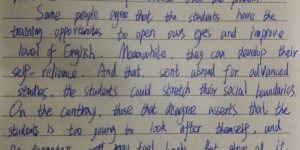 Some people agree that the students have the
training opportunites to open ours eyes and improve
level of English. Meanwhile, they can develop their
self-reliance. And that, sent abroad for advanced
studies, the students could stretch their social boundaries.
On the contrary, those that disagree asserts that the
students is too young to look after themself, and
may feel lonely. But above all it,